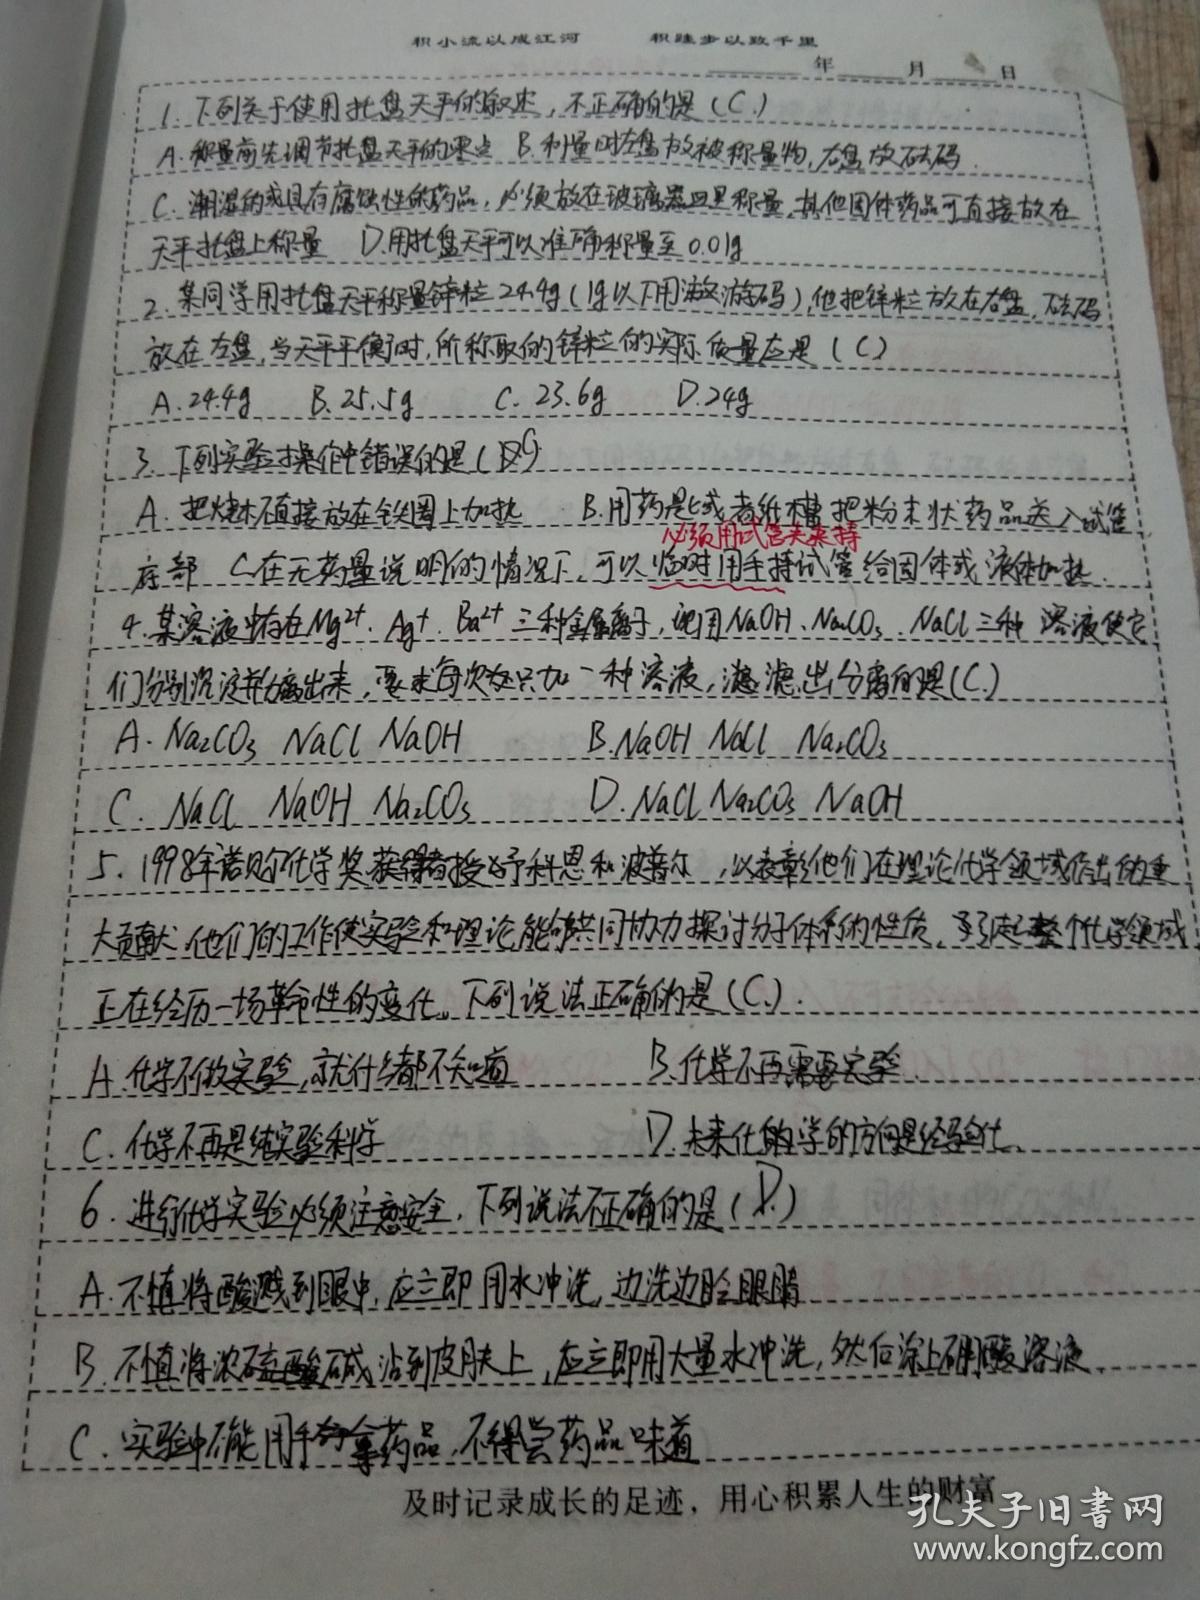 积小流以成江河 积跬步以致千里
年 月 日
1. 下列关于使用托盘天平的叙述,不正确的是(C.)
A.称量前先调节托盘天平的零点 B.称量时左盘放被称量物,右盘放砝码.
C.潮湿的或具有腐蚀性的药品,必须放在玻璃器皿里称量,其他固体药品可直接放在
天平托盘上称量 D.用托盘天平可以准确称量至0.01g
2. 某同学用托盘天平称量锌粒24.4g(1g以下用游码),他把锌粒放在右盘,砝码
放在左盘,当天平平衡时,所称取的锌粒的实际质量应是(C)
A.24.4g B.25.5g C.23.6g D.24g
3. 下列实验操作中错误的是( C)
A.把烧杯直接放在铁圈上加热 B.用药匙或者纸槽把粉末状药品送入试管
必须用试管夹来持
底部 C.在无药量说明的情况下,可以临时用手持试管给固体或液体加热.
4.某溶液中存在Mg²⁺.Ag⁺.Ba²⁺三种金属离子,现用NaOH、Na₂CO₃、NaCl三种溶液使它
们分别沉淀并分离出来,要求每次只加一种溶液,滤出分离的是(C.)
A.Na₂CO₃ NaCl NaOH B.NaOH NaCl Na₂CO₃
C.NaCl NaOH Na₂CO₃ D.NaCl Na₂CO₃ NaOH
5.1998年诺贝尔化学奖获得者授予科恩和波普尔,以表彰他们在理论化学领域作出的重
大贡献.他们的工作使实验和理论能够共同协力探讨分子体系的性质,引起整个化学领域
正在经历一场革命性的变化。下列说法正确的是(C.).
A.化学不做实验,就什么都不知道 B.化学不再需要实验.
C.化学不再是纯实验科学 D.未来化学的方向是经验化.
6.进行化学实验必须注意安全,下列说法不正确的是(D.)
A.不慎将酸溅到眼中,应立即用水冲洗,边洗边眨眼睛
B.不慎将浓碱沾到皮肤上,应立即用大量水冲洗,然后涂上硼酸溶液.
C.实验中不能用手拿药品,不得尝药品味道
及时记录成长的足迹,用心积累人生的财富
孔夫子旧书网
www.kongfz.com